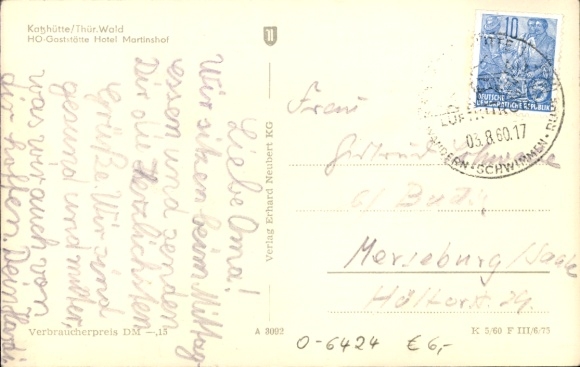 Katzhütte/Thür. Wald
HO-Gaststätte Hotel Martinshof
Liebe Oma!
Wir sitzen beim Mittag-
essen und senden
Dir die herzlichsten
Grüße. Wir sind
gesund und munter,
was wir auch von
dir hoffen. Dein
Verlag Erhard Neubert KG
Verbraucherpreis DM –,15
A 3002
K 5/60 F III/6/75
10
DEUTSCHE
DEMOKRATISCHE REPUBLIK
03.8.60.17
WANDERN · SCHWIMMEN · RU
Frau
Gertrud
b/ Budig
Merseburg/Saale
Hälterstr.
O-6424 € 6,-